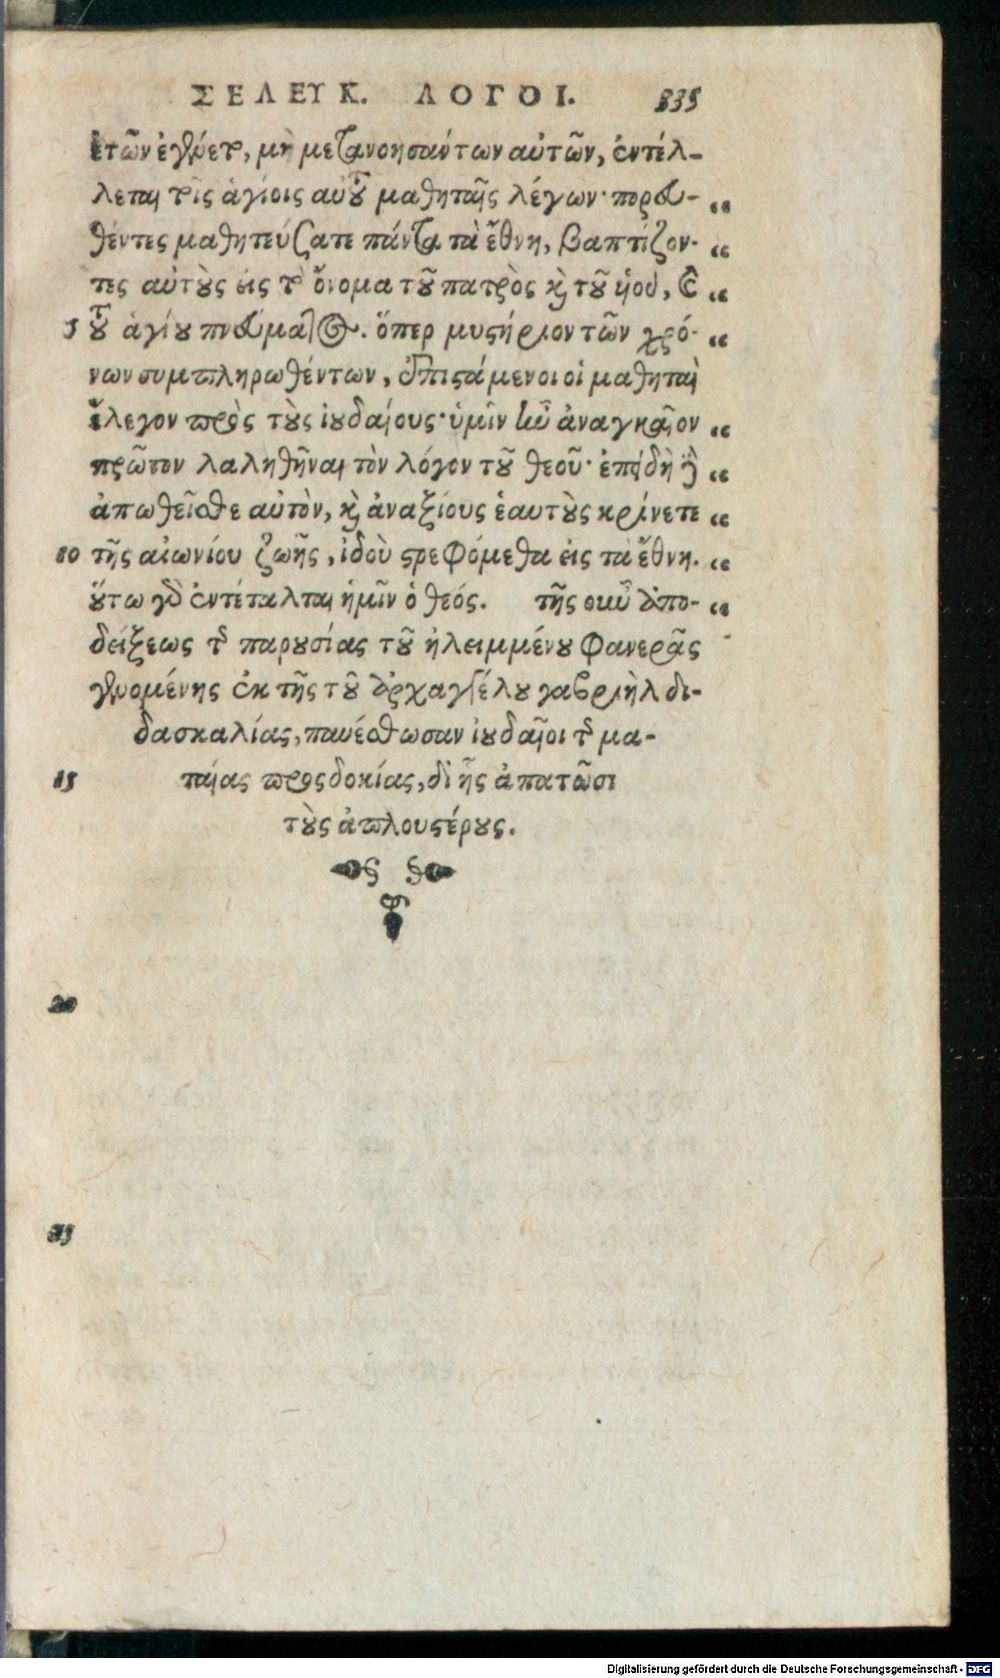 ΣΕΛΕΥΚ. ΛΟΓΟΙ. 335
ἐτῶν ἐγένετο, μὴ μετανοησάντων αὐτῶν, ἐντέλ-
λεται τοῖς ἁγίοις αὐτοῦ μαθηταῖς λέγων· πορευ- “
θέντες μαθητεύσατε πάντα τὰ ἔθνη, βαπτίζον- “
τες αὐτοὺς εἰς τὸ ὄνομα τοῦ πατρὸς καὶ τοῦ υἱοῦ, καὶ “
5 τοῦ ἁγίου πνεύματος. ὅπερ μυστήριον τῶν χρό- “
νων συμπληρωθέντων, ἐπιστάμενοι οἱ μαθηταὶ
ἔλεγον πρὸς τοὺς ἰουδαίους· ὑμῖν ἦν ἀναγκαῖον “
πρῶτον λαληθῆναι τὸν λόγον τοῦ θεοῦ· ἐπειδὴ δὲ “
ἀπωθεῖσθε αὐτὸν, καὶ ἀναξίους ἑαυτοὺς κρίνετε “
10 τῆς αἰωνίου ζωῆς, ἰδοὺ στρεφόμεθα εἰς τὰ ἔθνη. “
οὕτω γὰρ ἐντέταλται ἡμῖν ὁ θεός. τῆς οὖν ἀπο- “
δείξεως τῆς παρουσίας τοῦ ἠλειμμένου φανερᾶς
γενομένης ἐκ τῆς τοῦ ἀρχαγγέλου γαβριὴλ δι-
δασκαλίας, παυέσθωσαν ἰουδαῖοι τῆς μα-
15 ταίας προσδοκίας, δι ἧς ἀπατῶσι
τοὺς ἁπλουστέρους.
20
25
Digitalisierung gefördert durch die Deutsche Forschungsgemeinschaft - DFG